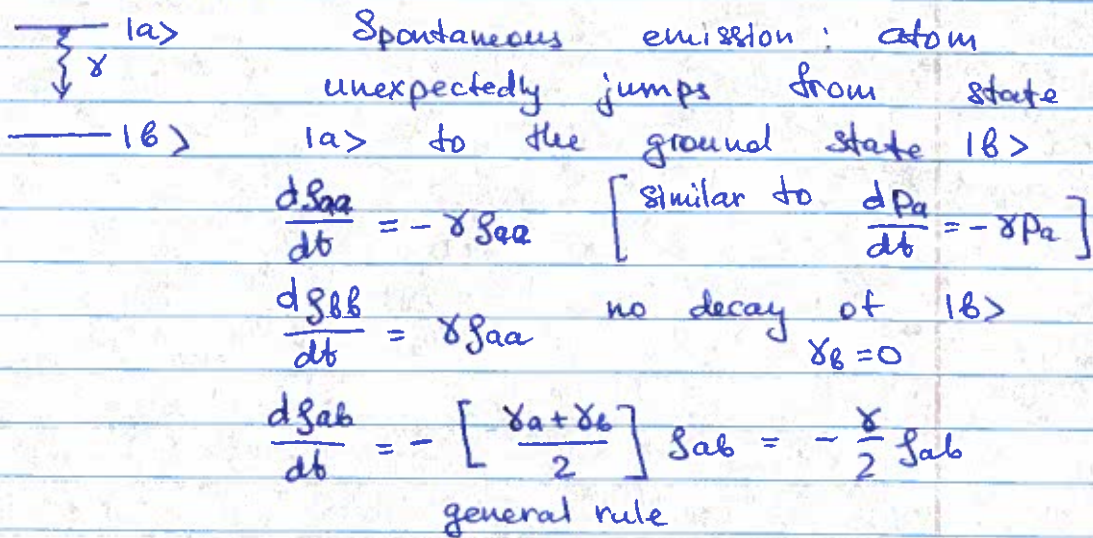 |a> Spontaneous emission : atom
γ unexpectedly jumps from state
|b> |a> to the ground state |b>
dρaa/dt = - γρaa [similar to dPa/dt = - γPa]
dρbb/dt = γρaa no decay of |b>
γb = 0
dρab/dt = - [γa + γb / 2] ρab = - γ/2 ρab
general rule